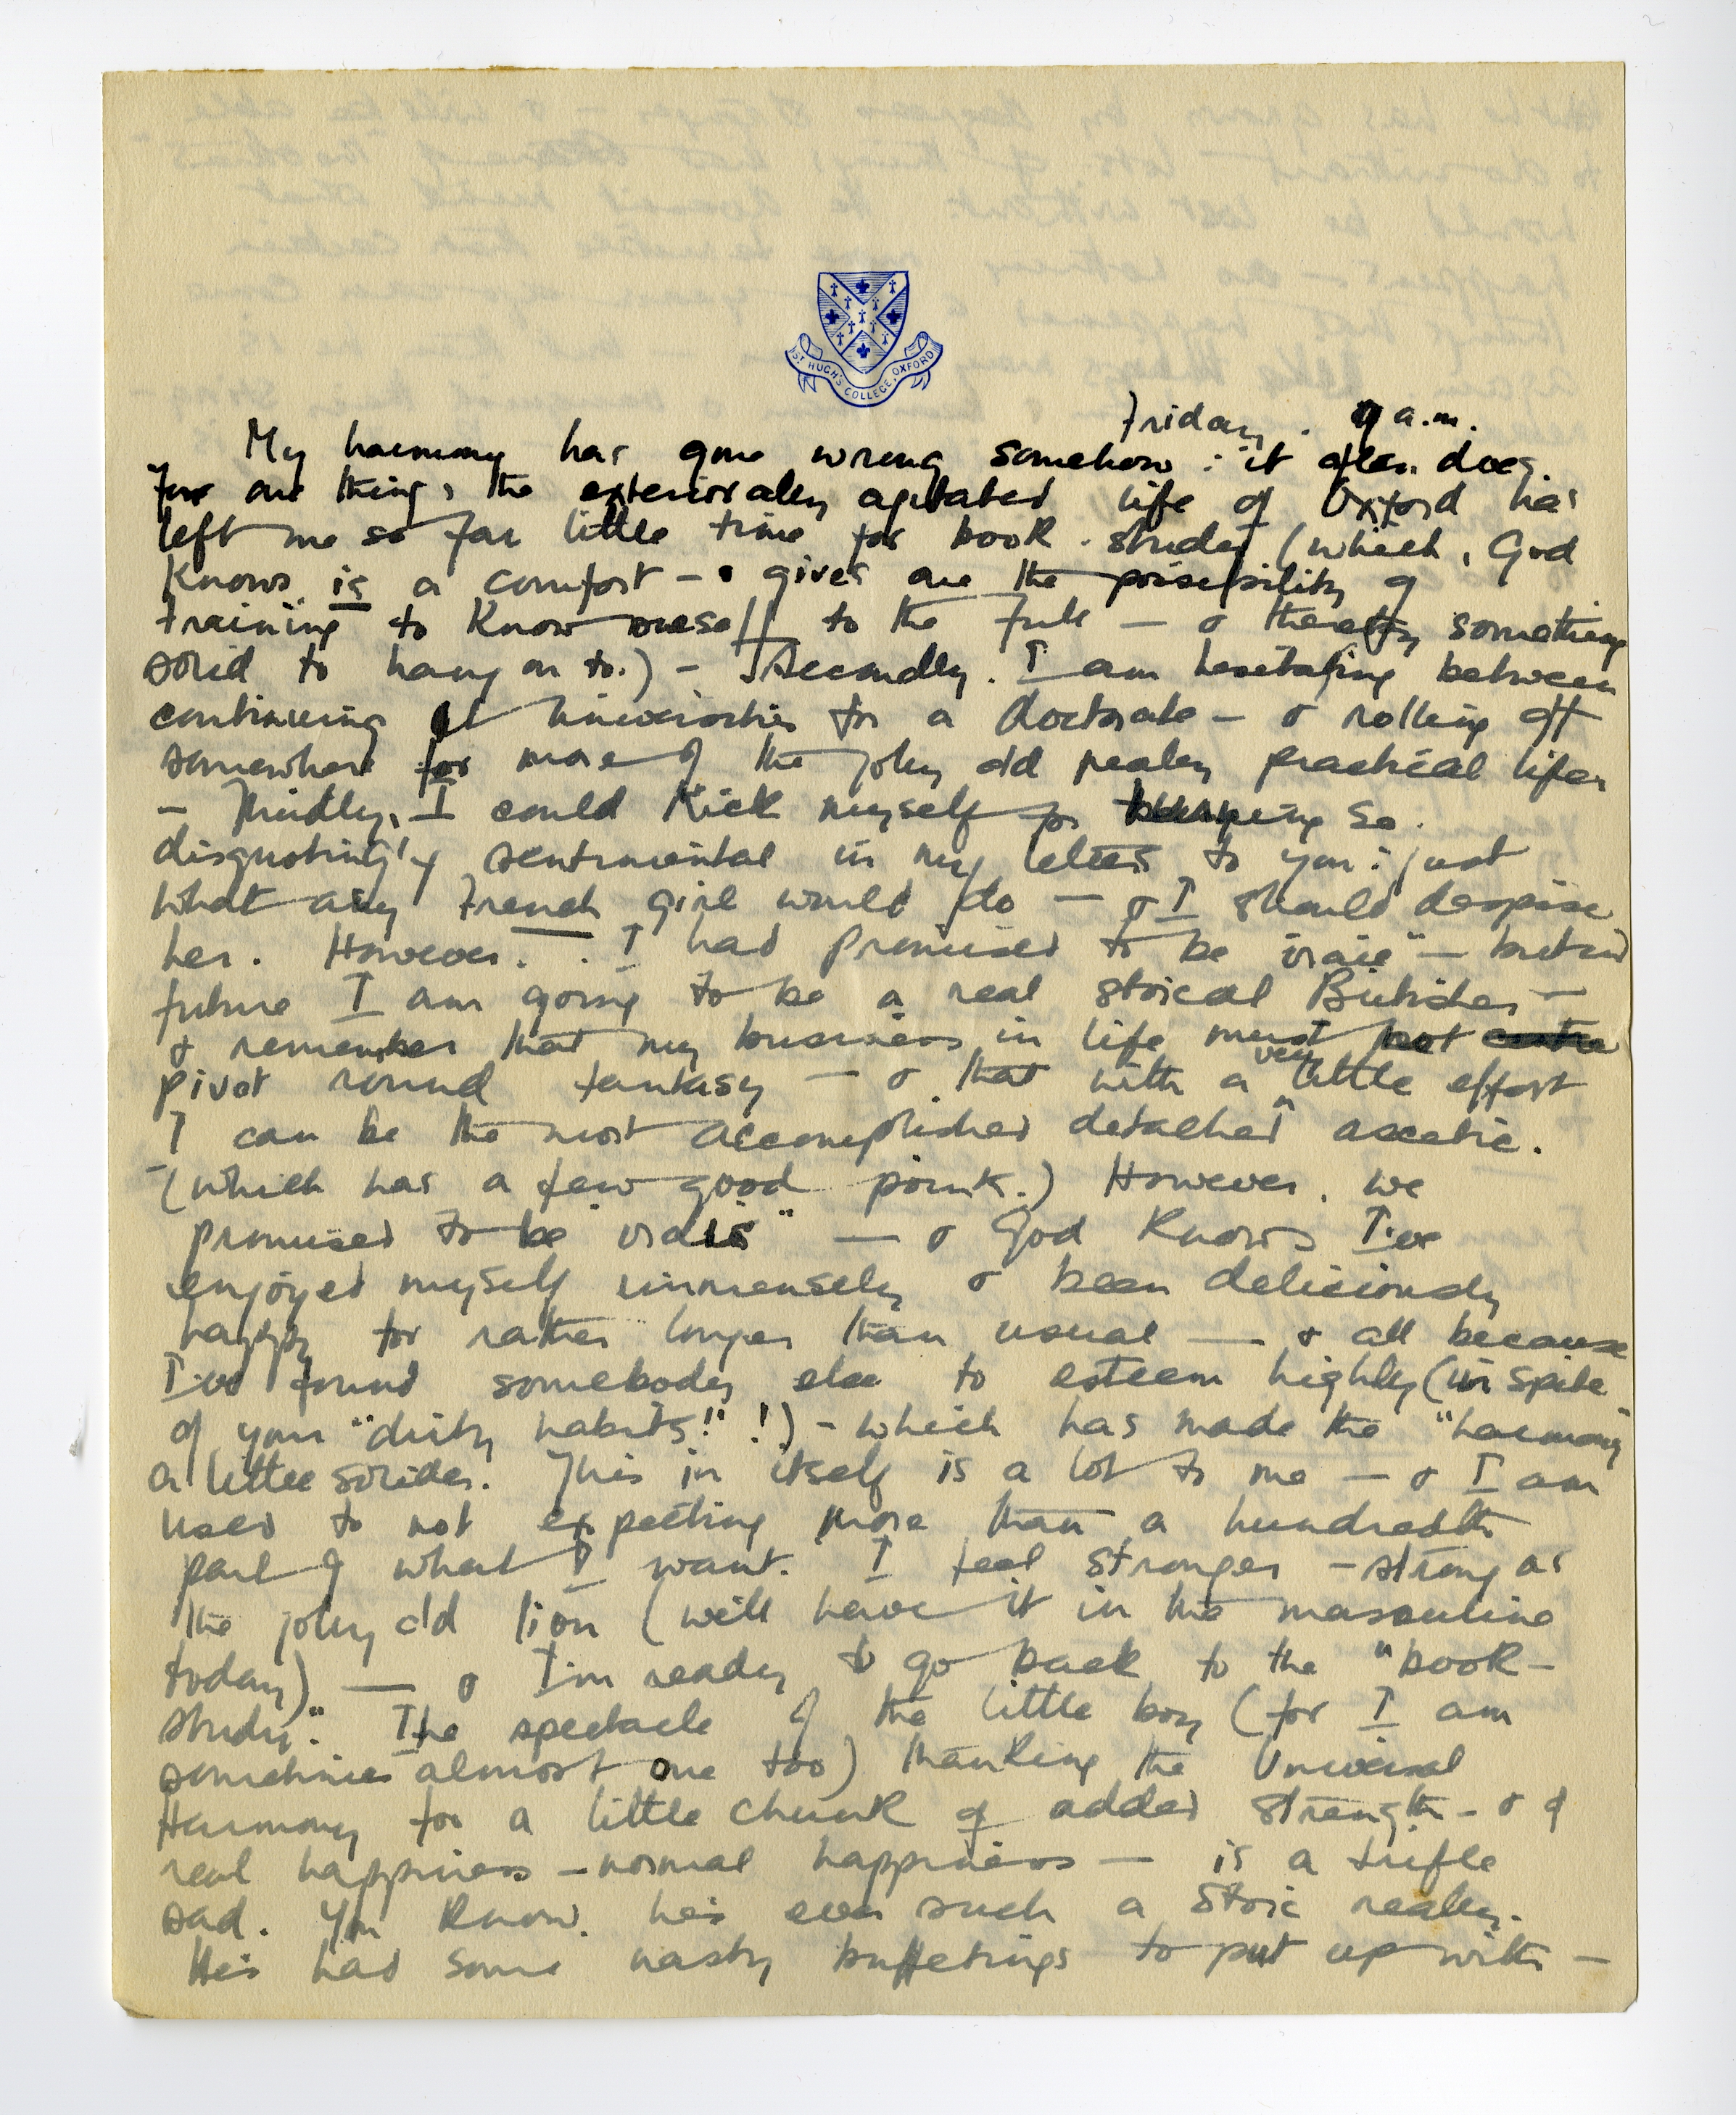 ST HUGH'S COLLEGE, OXFORD
Friday. 9 a.m.
My harmony has gone wrong somehow: it often does.
For one thing, the exteriorally agitated life of Oxford has
left me so far little time for book-study (which, God
knows, is a comfort - gives one the possibility of
training to know oneself to the full — & thereby something
solid to hang on to.) - Secondly. I am hesitating between
continuing at universities for a doctorate — & rolling off
somewhere for more of the jolly old really practical life
— Thirdly, I could kick myself for being so
disgustingly sentimental in my letters to you: just
what any French girl would do — & I should despise
her. However.. I had promised to be "vraie" — but in
future I am going to be a real stoical Britisher —
& remember that my business in life must not centre
pivot round fantasy — & that with a very little effort
I can be the most accomplished detached ascetic.
- (which has a few good points.) However, we
promised to be "vrais" — & God knows I've
enjoyed myself immensely & been deliciously
happy for rather longer than usual — & all because
I've found somebody else to esteem highly (in spite
of your "dirty habits!" !) - which has made the "harmony"
a little solider. This in itself is a lot to me — & I am
used to not expecting more than a hundredth
part of what I want. I feel stronger - strong as
the jolly old lion (we'll have it in the masculine
today) — & I'm ready to go back to the "book-
study". The spectacle of the little boy (for I am
sometimes almost one too) thanking the Universal
Harmony for a little chunk of added strength - & of
real happiness - normal happiness — is a trifle
sad. You know, he's ever such a stoic really.
He's had some nasty buffetings to put up with —